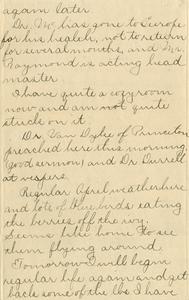 again later.
Dr. Mc has gone to Europe
for his health, not to return
for several months, and Mr.
Raymond is acting head
master.
I have quite a cozy room
now and am not quite
stuck on it.
Dr. Van Dyke of Princeton
preached here this morning
(good sermon) and Dr Durrell
at vespers.
Regular April weather here
and lots of blue birds eating
the berries off the ivy.
Seems like home to see
them flying around.
Tomorrow I will begin
regular life again and get
back some of the lbs I have